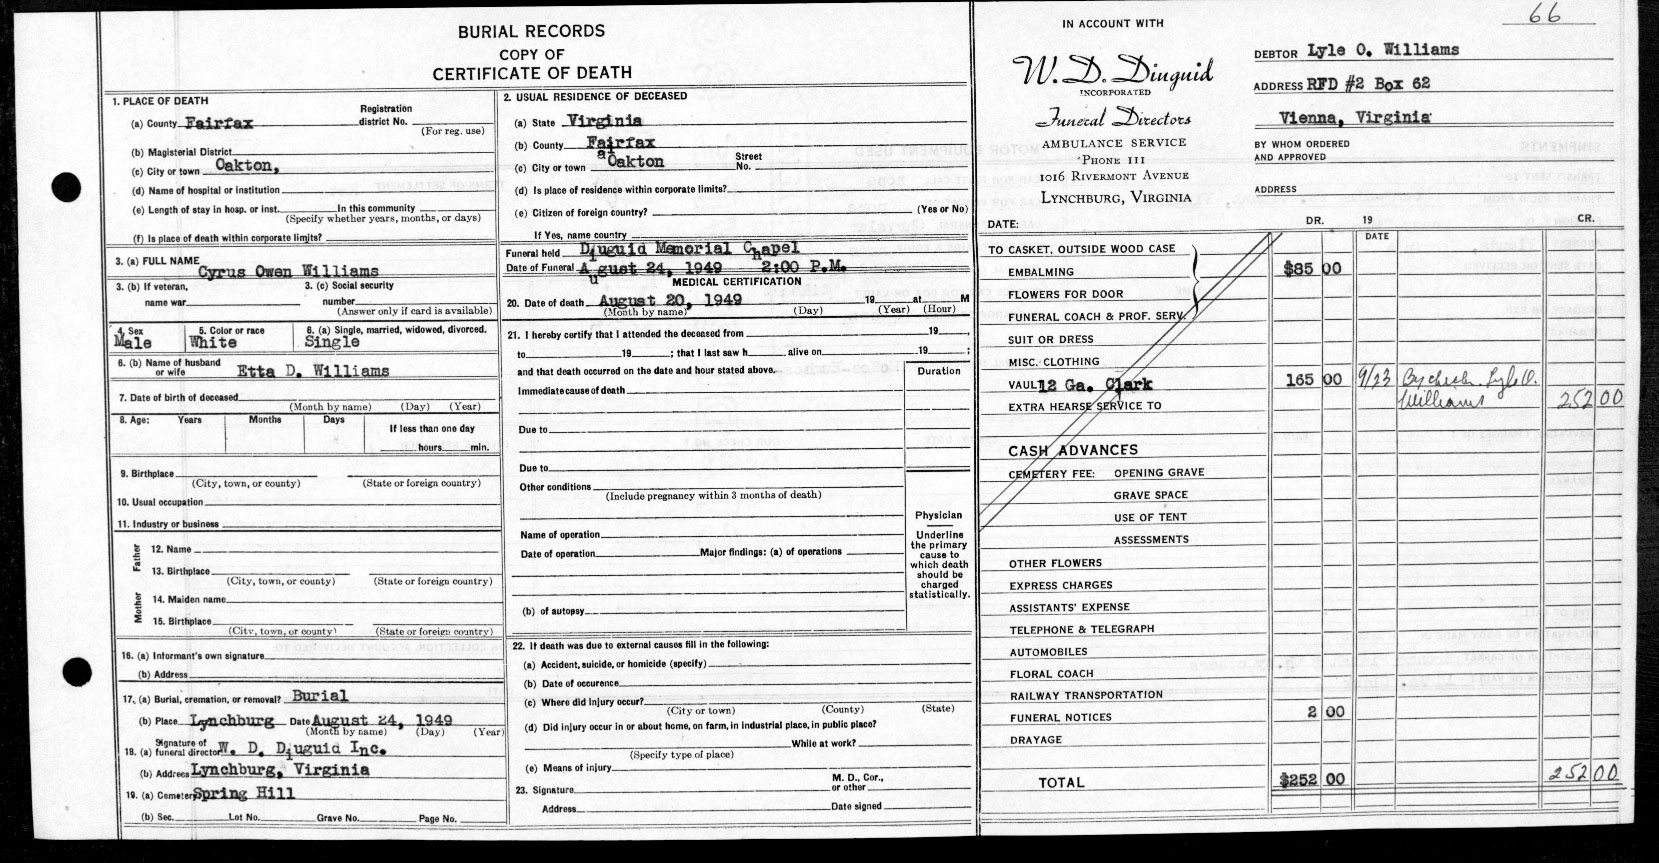 66
BURIAL RECORDS
COPY OF
CERTIFICATE OF DEATH
1. PLACE OF DEATH
(a) County Fairfax Registration district No.
(For reg. use)
(b) Magisterial District
(c) City or town Oakton,
(d) Name of hospital or institution
(e) Length of stay in hosp. or inst. In this community
(Specify whether years, months, or days)
(f) Is place of death within corporate limits?
3. (a) FULL NAME Cyrus Owen Williams
3. (b) If veteran, 3. (c) Social security
name war number
(Answer only if card is available)
4. Sex 5. Color or race 6. (a) Single, married, widowed, divorced.
Male White Single
6. (b) Name of husband
or wife Etta D. Williams
7. Date of birth of deceased
(Month by name) (Day) (Year)
8. Age: Years Months Days If less than one day
hours min.
9. Birthplace
(City, town, or county) (State or foreign country)
10. Usual occupation
11. Industry or business
Father
12. Name
13. Birthplace
(City, town, or county) (State or foreign country)
Mother
14. Maiden name
15. Birthplace
(City, town, or county) (State or foreign country)
16. (a) Informant's own signature
(b) Address
17. (a) Burial, cremation, or removal? Burial
(b) Place Lynchburg Date August 24, 1949
(Month by name) (Day) (Year)
18. (a) Signature of funeral director W. D. Diuguid Inc.
(b) Address Lynchburg, Virginia
19. (a) Cemetery Spring Hill
(b) Sec. Lot No. Grave No. Page No.
2. USUAL RESIDENCE OF DECEASED
(a) State Virginia
(b) County Fairfax
(c) City or town Oakton Street No.
(d) Is place of residence within corporate limits?
(e) Citizen of foreign country? (Yes or No)
If Yes, name country
Funeral held Diuguid Memorial Chapel
Date of Funeral August 24, 1949 2:00 P.M.
MEDICAL CERTIFICATION
20. Date of death August 20, 1949 19 at M
(Month by name) (Day) (Year) (Hour)
21. I hereby certify that I attended the deceased from 19 ,
to 19 ; that I last saw h alive on 19 ;
and that death occurred on the date and hour stated above. Duration
Immediate cause of death
Due to
Due to
Other conditions
(Include pregnancy within 3 months of death)
Name of operation
Date of operation Major findings: (a) of operations
(b) of autopsy
Physician
Underline
the primary
cause to
which death
should be
charged
statistically.
22. If death was due to external causes fill in the following:
(a) Accident, suicide, or homicide (specify)
(b) Date of occurence
(c) Where did injury occur?
(City or town) (County) (State)
(d) Did injury occur in or about home, on farm, in industrial place, in public place?
While at work?
(Specify type of place)
(e) Means of injury
23. Signature M. D., Cor., or other
Address Date signed
IN ACCOUNT WITH
W. D. Diuguid
INCORPORATED
Funeral Directors
AMBULANCE SERVICE
PHONE 111
1016 RIVERMONT AVENUE
LYNCHBURG, VIRGINIA
DEBTOR Lyle O. Williams
ADDRESS RFD #2 Box 62
Vienna, Virginia
BY WHOM ORDERED
AND APPROVED
ADDRESS
DATE: DR. 19 CR.
DATE
TO CASKET, OUTSIDE WOOD CASE
EMBALMING $85 00
FLOWERS FOR DOOR
FUNERAL COACH & PROF. SERV.
SUIT OR DRESS
MISC. CLOTHING
VAULT 12 Ga. Clark 165 00 9/23 By check. Lyle O.
EXTRA HEARSE SERVICE TO Williams 252 00
CASH ADVANCES
CEMETERY FEE: OPENING GRAVE
GRAVE SPACE
USE OF TENT
ASSESSMENTS
OTHER FLOWERS
EXPRESS CHARGES
ASSISTANTS' EXPENSE
TELEPHONE & TELEGRAPH
AUTOMOBILES
FLORAL COACH
RAILWAY TRANSPORTATION
FUNERAL NOTICES 2 00
DRAYAGE
TOTAL $252 00 252 00